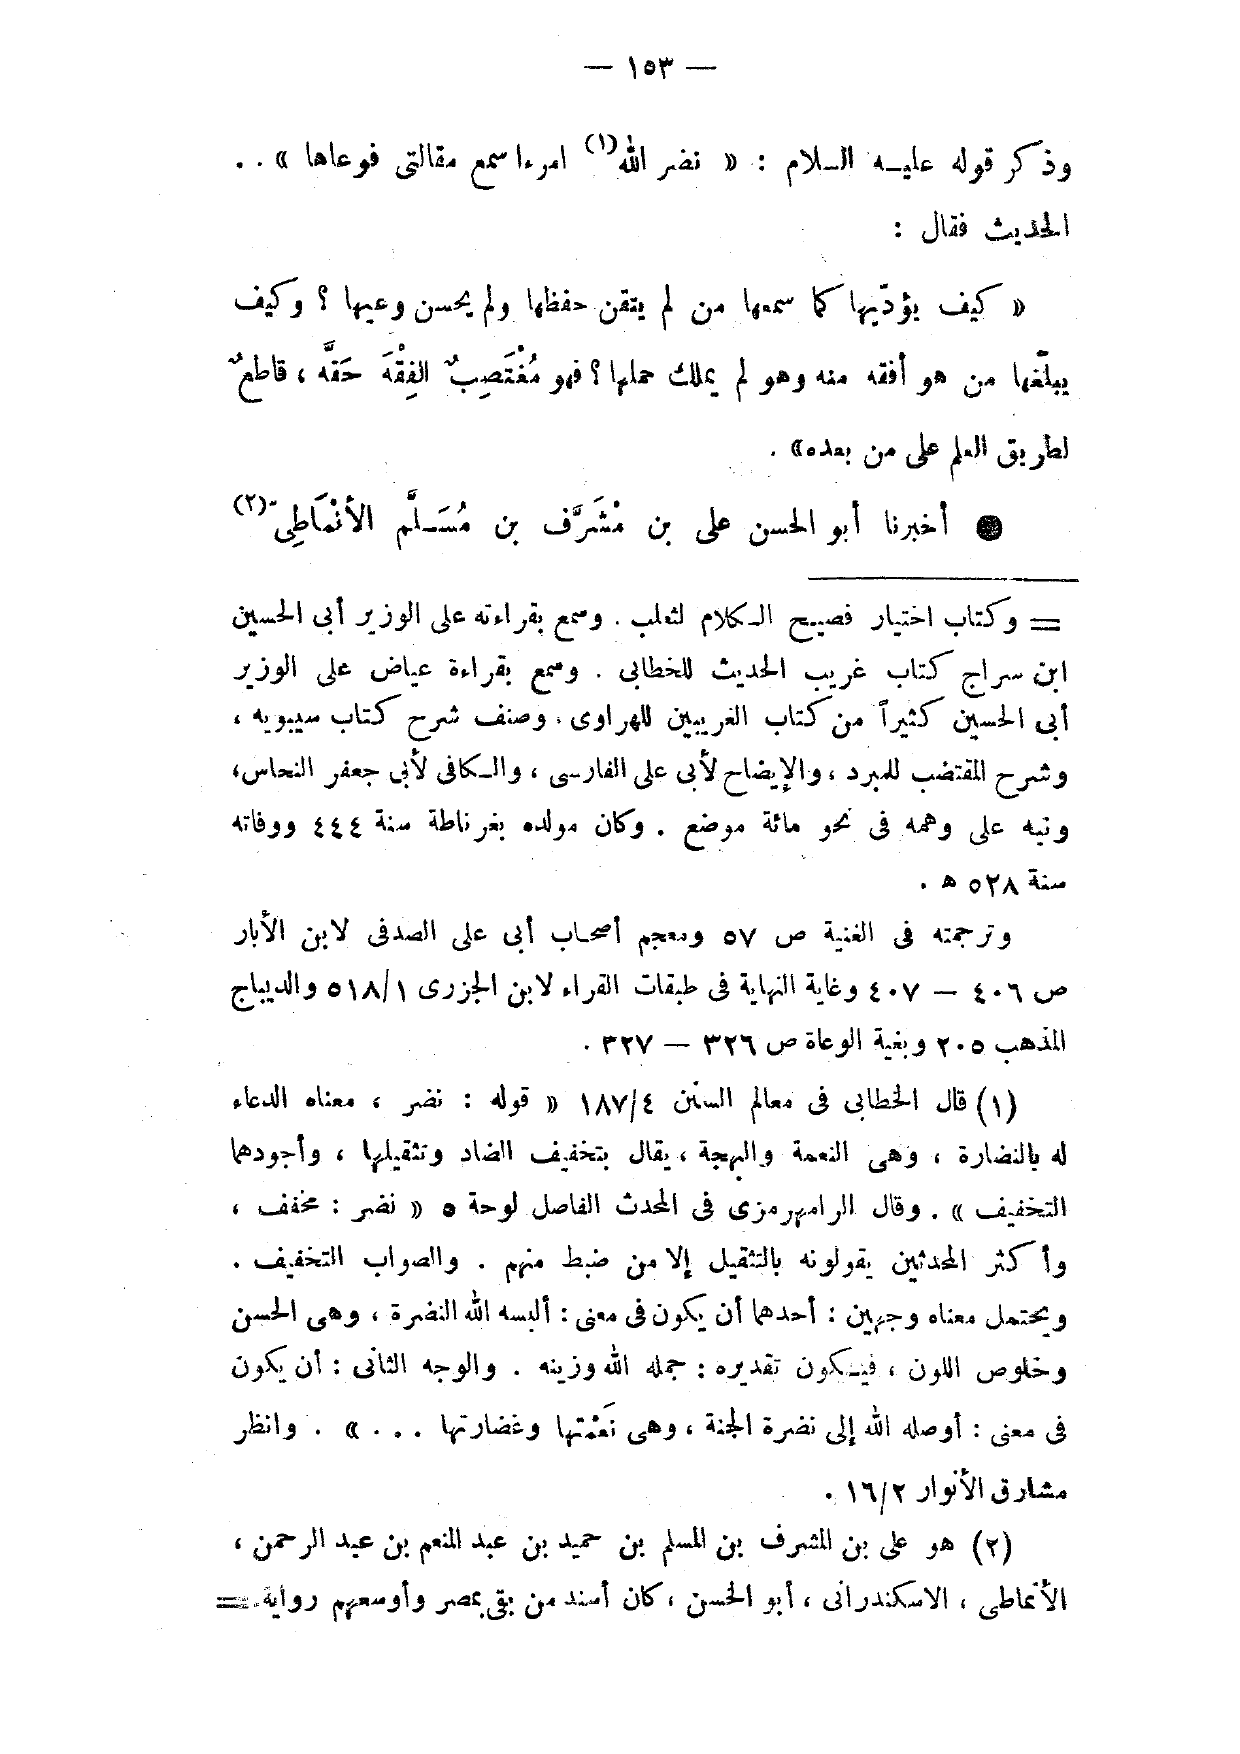 — ١٥٣ —
وذكر قوله عليه السلام : « نضر الله(١) امرءا سمع مقالتى فوعاها » . .
الحديث فقال :
« كيف يؤدّيها كما سمعها من لم يتقن حفظها ولم يحسن وعيها ؟ وكيف
يبلّغها من هو أفقه منه وهو لم يملك حملها ؟ فهو مُغْتَصِبٌ الفِقْهَ حَقَّه ، قاطعٌ
لطريق العلم على من بعده» .
● أخبرنا أبو الحسن على بن مُشَرَّف بن مُسَلَّم الأنْمَاطِى(٢)
= وكتاب اختيار فصيح الكلام لثعلب . وسمع بقراءته على الوزير أبى الحسين
ابن سراج كتاب غريب الحديث للخطابى . وسمع بقراءة عياض على الوزير
أبى الحسين كثيراً من كتاب الغريبين للهراوى ، وصنف شرح كتاب سيبويه ،
وشرح المقتضب للمبرد ، والإيضاح لأبى على الفارسى ، والكافى لأبى جعفر النحاس،
ونبه على وهمه فى نحو مائة موضع . وكان مولده بغرناطة سنة ٤٤٤ ووفاته
سنة ٥٢٨ ه .
وترجمته فى الغنية ص ٥٧ ومعجم أصحاب أبى على الصدفى لابن الأبار
ص ٤٠٦ — ٤٠٧ وغاية النهاية فى طبقات القراء لابن الجزرى ٥١٨/١ والديباج
المذهب ٢٠٥ وبغية الوعاة ص ٣٢٦ — ٣٢٧ .
(١) قال الخطابى فى معالم السنن ١٨٧/٤ « قوله : نضر ، معناه الدعاء
له بالنضارة ، وهى النعمة والبهجة ، يقال بتخفيف الضاد وتثقيلها ، وأجودهما
التخفيف » . وقال الرامهرمزى فى المحدث الفاصل لوحة ٥ « نضر : مخفف ،
وأكثر المحدثين يقولونه بالتثقيل إلا من ضبط منهم . والصواب التخفيف .
ويحتمل معناه وجهين : أحدهما أن يكون فى معنى : ألبسه الله النضرة ، وهى الحسن
وخلوص اللون ، فيكون تقديره : جمله الله وزينه . والوجه الثانى : أن يكون
فى معنى : أوصله الله إلى نضرة الجنة ، وهى نَعْمَتها وغضارتها . . . » . وانظر
مشارق الأنوار ١٦/٢ .
(٢) هو على بن المشرف بن المسلم بن حميد بن عبد المنعم بن عبد الرحمن ،
الأنماطى ، الاسكندرانى ، أبو الحسن ، كان أسند من بقى بمصر وأوسعهم رواية =